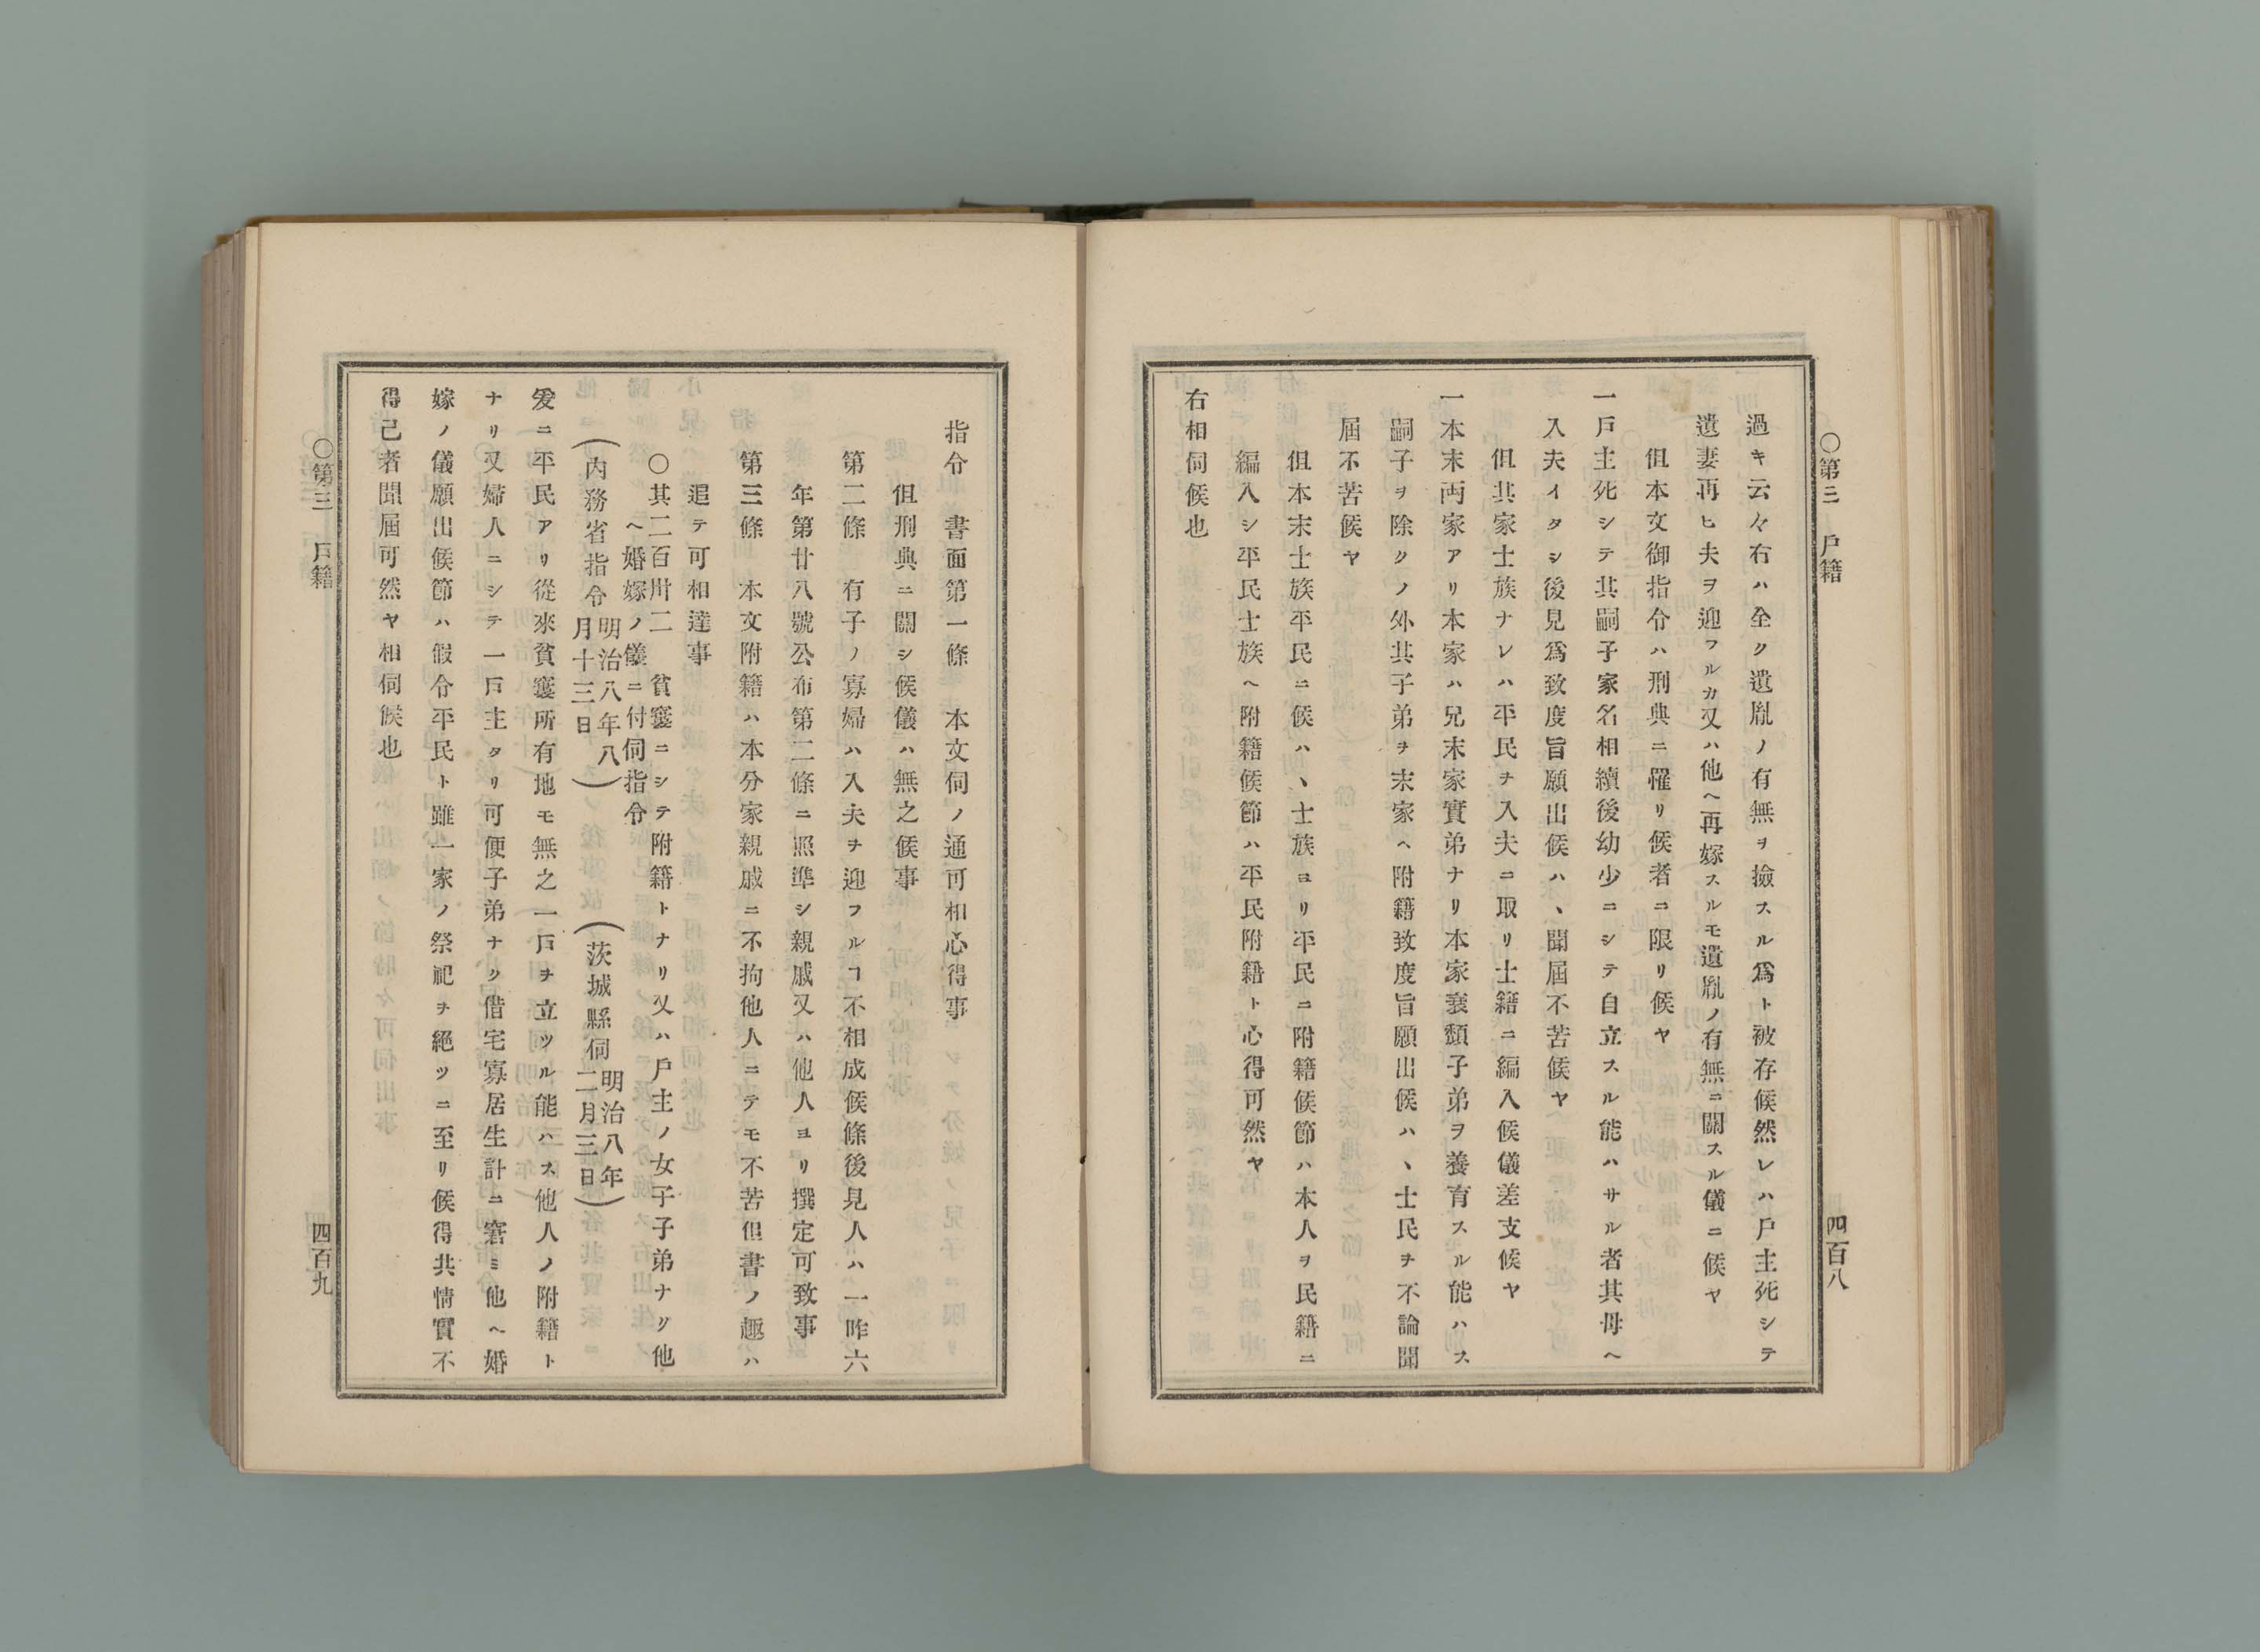 ○第三　戶籍
四百八
過キ云々右ハ全ク遺胤ノ有無ヲ撿スル爲ト被存候然レハ戶主死シテ
遺妻再ヒ夫ヲ迎フルカ又ハ他ヘ再嫁スルモ遺胤ノ有無ニ關スル儀ニ候ヤ
但本文御指令ハ刑典ニ罹リ候者ニ限リ候ヤ
一戶主死シテ其嗣子家名相續後幼少ニシテ自立スル能ハサル者其母ヘ
入夫イタシ後見爲致度旨願出候ハヽ聞屆不苦候ヤ
但其家士族ナレハ平民ヲ入夫ニ取リ士籍ニ編入候儀差支候ヤ
一本末両家アリ本家ハ兄末家實弟ナリ本家衰頽子弟ヲ養育スル能ハス
嗣子ヲ除クノ外其子弟ヲ末家ヘ附籍致度旨願出候ハヽ士民ヲ不論聞
屆不苦候ヤ
但本末士族平民ニ候ハヽ士族ヨリ平民ニ附籍候節ハ本人ヲ民籍ニ
編入シ平民士族ヘ附籍候節ハ平民附籍ト心得可然ヤ
右相伺候也
指令　書面第一條　本文伺ノ通可相心得事
但刑典ニ關シ候儀ハ無之候事
第二條　有子ノ寡婦ハ入夫ヲ迎フルコ不相成候條後見人ハ一昨六
年第廿八號公布第二條ニ照準シ親戚又ハ他人ヨリ撰定可致事
第三條　本文附籍ハ本分家親戚ニ不拘他人ニテモ不苦但書ノ趣ハ
追テ可相達事
○其二百卅二　貧窶ニシテ附籍トナリ又ハ戶主ノ女子子弟ナク他
ヘ婚嫁ノ儀ニ付伺指令
（內務省指令明治八年八月十三日）（茨城縣伺明治八年二月三日）
爰ニ平民アリ從來貧窶所有地モ無之一戶ヲ立ツル能ハス他人ノ附籍ト
ナリ又婦人ニシテ一戶主タリ可便子弟ナク借宅寡居生計ニ窘ミ他ヘ婚
嫁ノ儀願出候節ハ假令平民ト雖一家ノ祭祀ヲ絕ツニ至リ候得共情實不
得已者聞屆可然ヤ相伺候也
○第三　戶籍
四百九